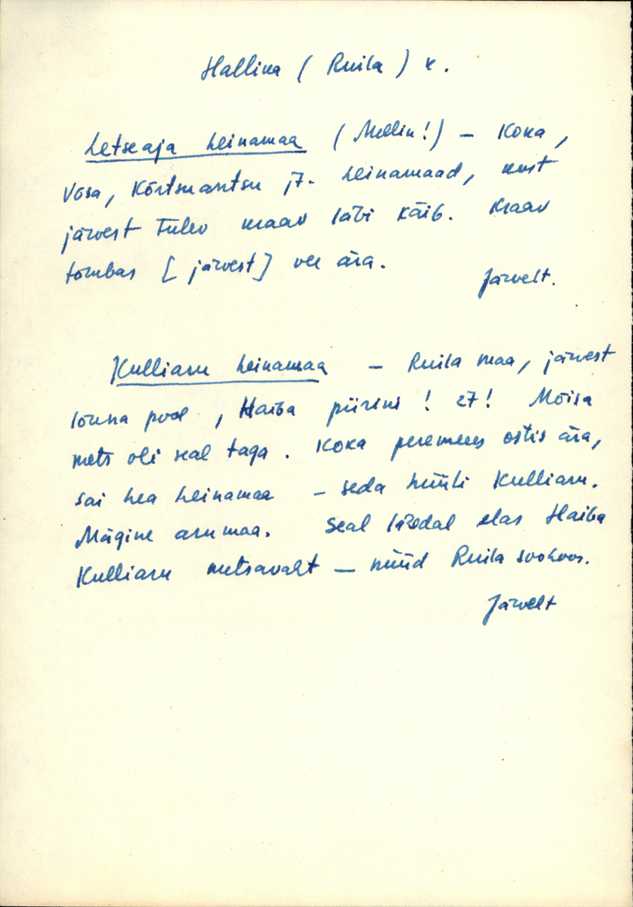 Hallina (Ruila) k.
Letseaja heinamaa (Mellin!) – Koka,
Võsa, Kõrtsmantsu j7. heinamaad, kust
järvest tulev kraav läbi käib. Kraav
tõmbas [järvest] vee ära.
Järvelt.
Kulliaru heinamaa – Ruila maa, järvest
lõuna pool, Haiba piirini! 27! Mõisa
mets oli seal taga. Koka peremees ostis ära,
sai hea heinamaa – seda hüüti Kulliaru.
Mägine arumaa. Seal lähedal elas Haiba
Kulliaru metsavaht – nüüd Ruila sovhoos.
Järvelt